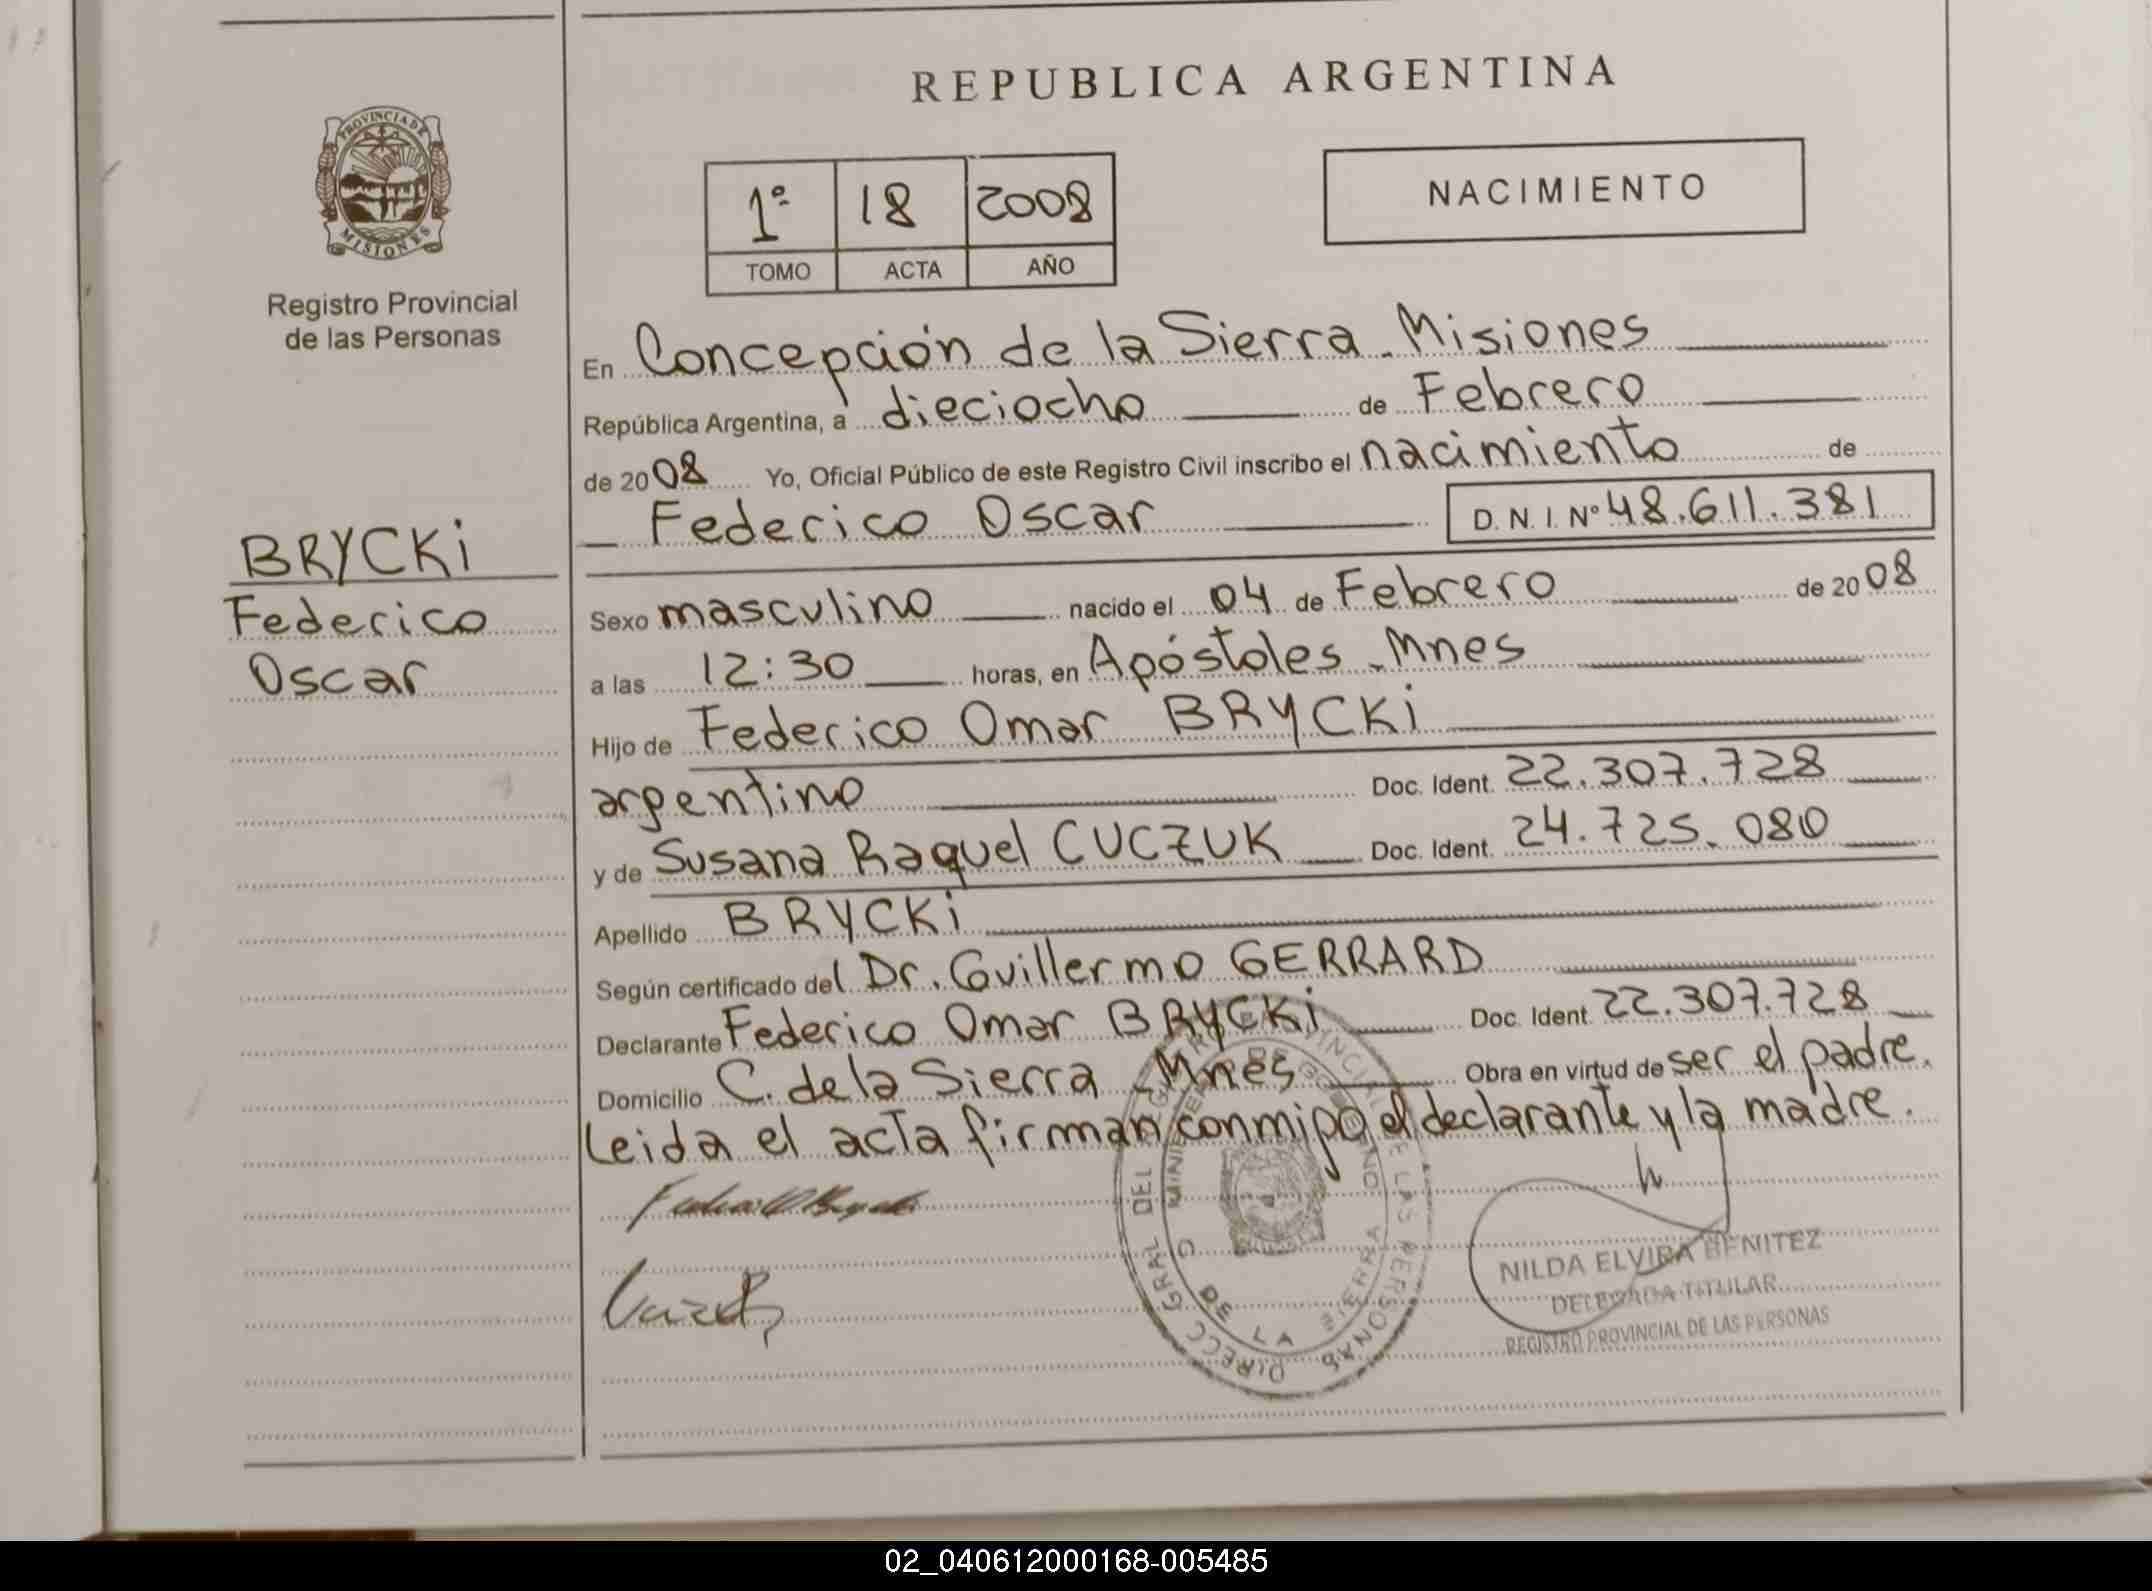 REPUBLICA ARGENTINA
PROVINCIA DE MISIONES
Registro Provincial
de las Personas
1º 18 2008
TOMO ACTA AÑO
NACIMIENTO
En Concepción de la Sierra - Misiones
República Argentina, a dieciocho de Febrero
de 2008 Yo, Oficial Público de este Registro Civil inscribo el nacimiento de
Federico Oscar D. N. I. Nº 48.611.381
BRYCKi
Federico
Oscar
Sexo masculino nacido el 04 de Febrero de 2008
a las 12:30 horas, en Apóstoles - Mnes
Hijo de Federico Omar BRYCKi
argentino Doc. Ident. 22.307.728
y de Susana Raquel CUCZUK Doc. Ident. 24.725.080
Apellido BRYCKi
Según certificado del Dr. Guillermo GERRARD
Declarante Federico Omar BRYCKi Doc. Ident. 22.307.728
Domicilio C. de la Sierra - Mnes Obra en virtud de ser el padre.
Leida el acta firman conmigo el declarante y la madre.
DIRECC GRAL DEL PROVINCIAL DE LAS PERSONAS
C DE LA SIERRA
NILDA ELVIRA BENITEZ
DELEGADA TITULAR
REGISTRO PROVINCIAL DE LAS PERSONAS
02_040612000168-005485